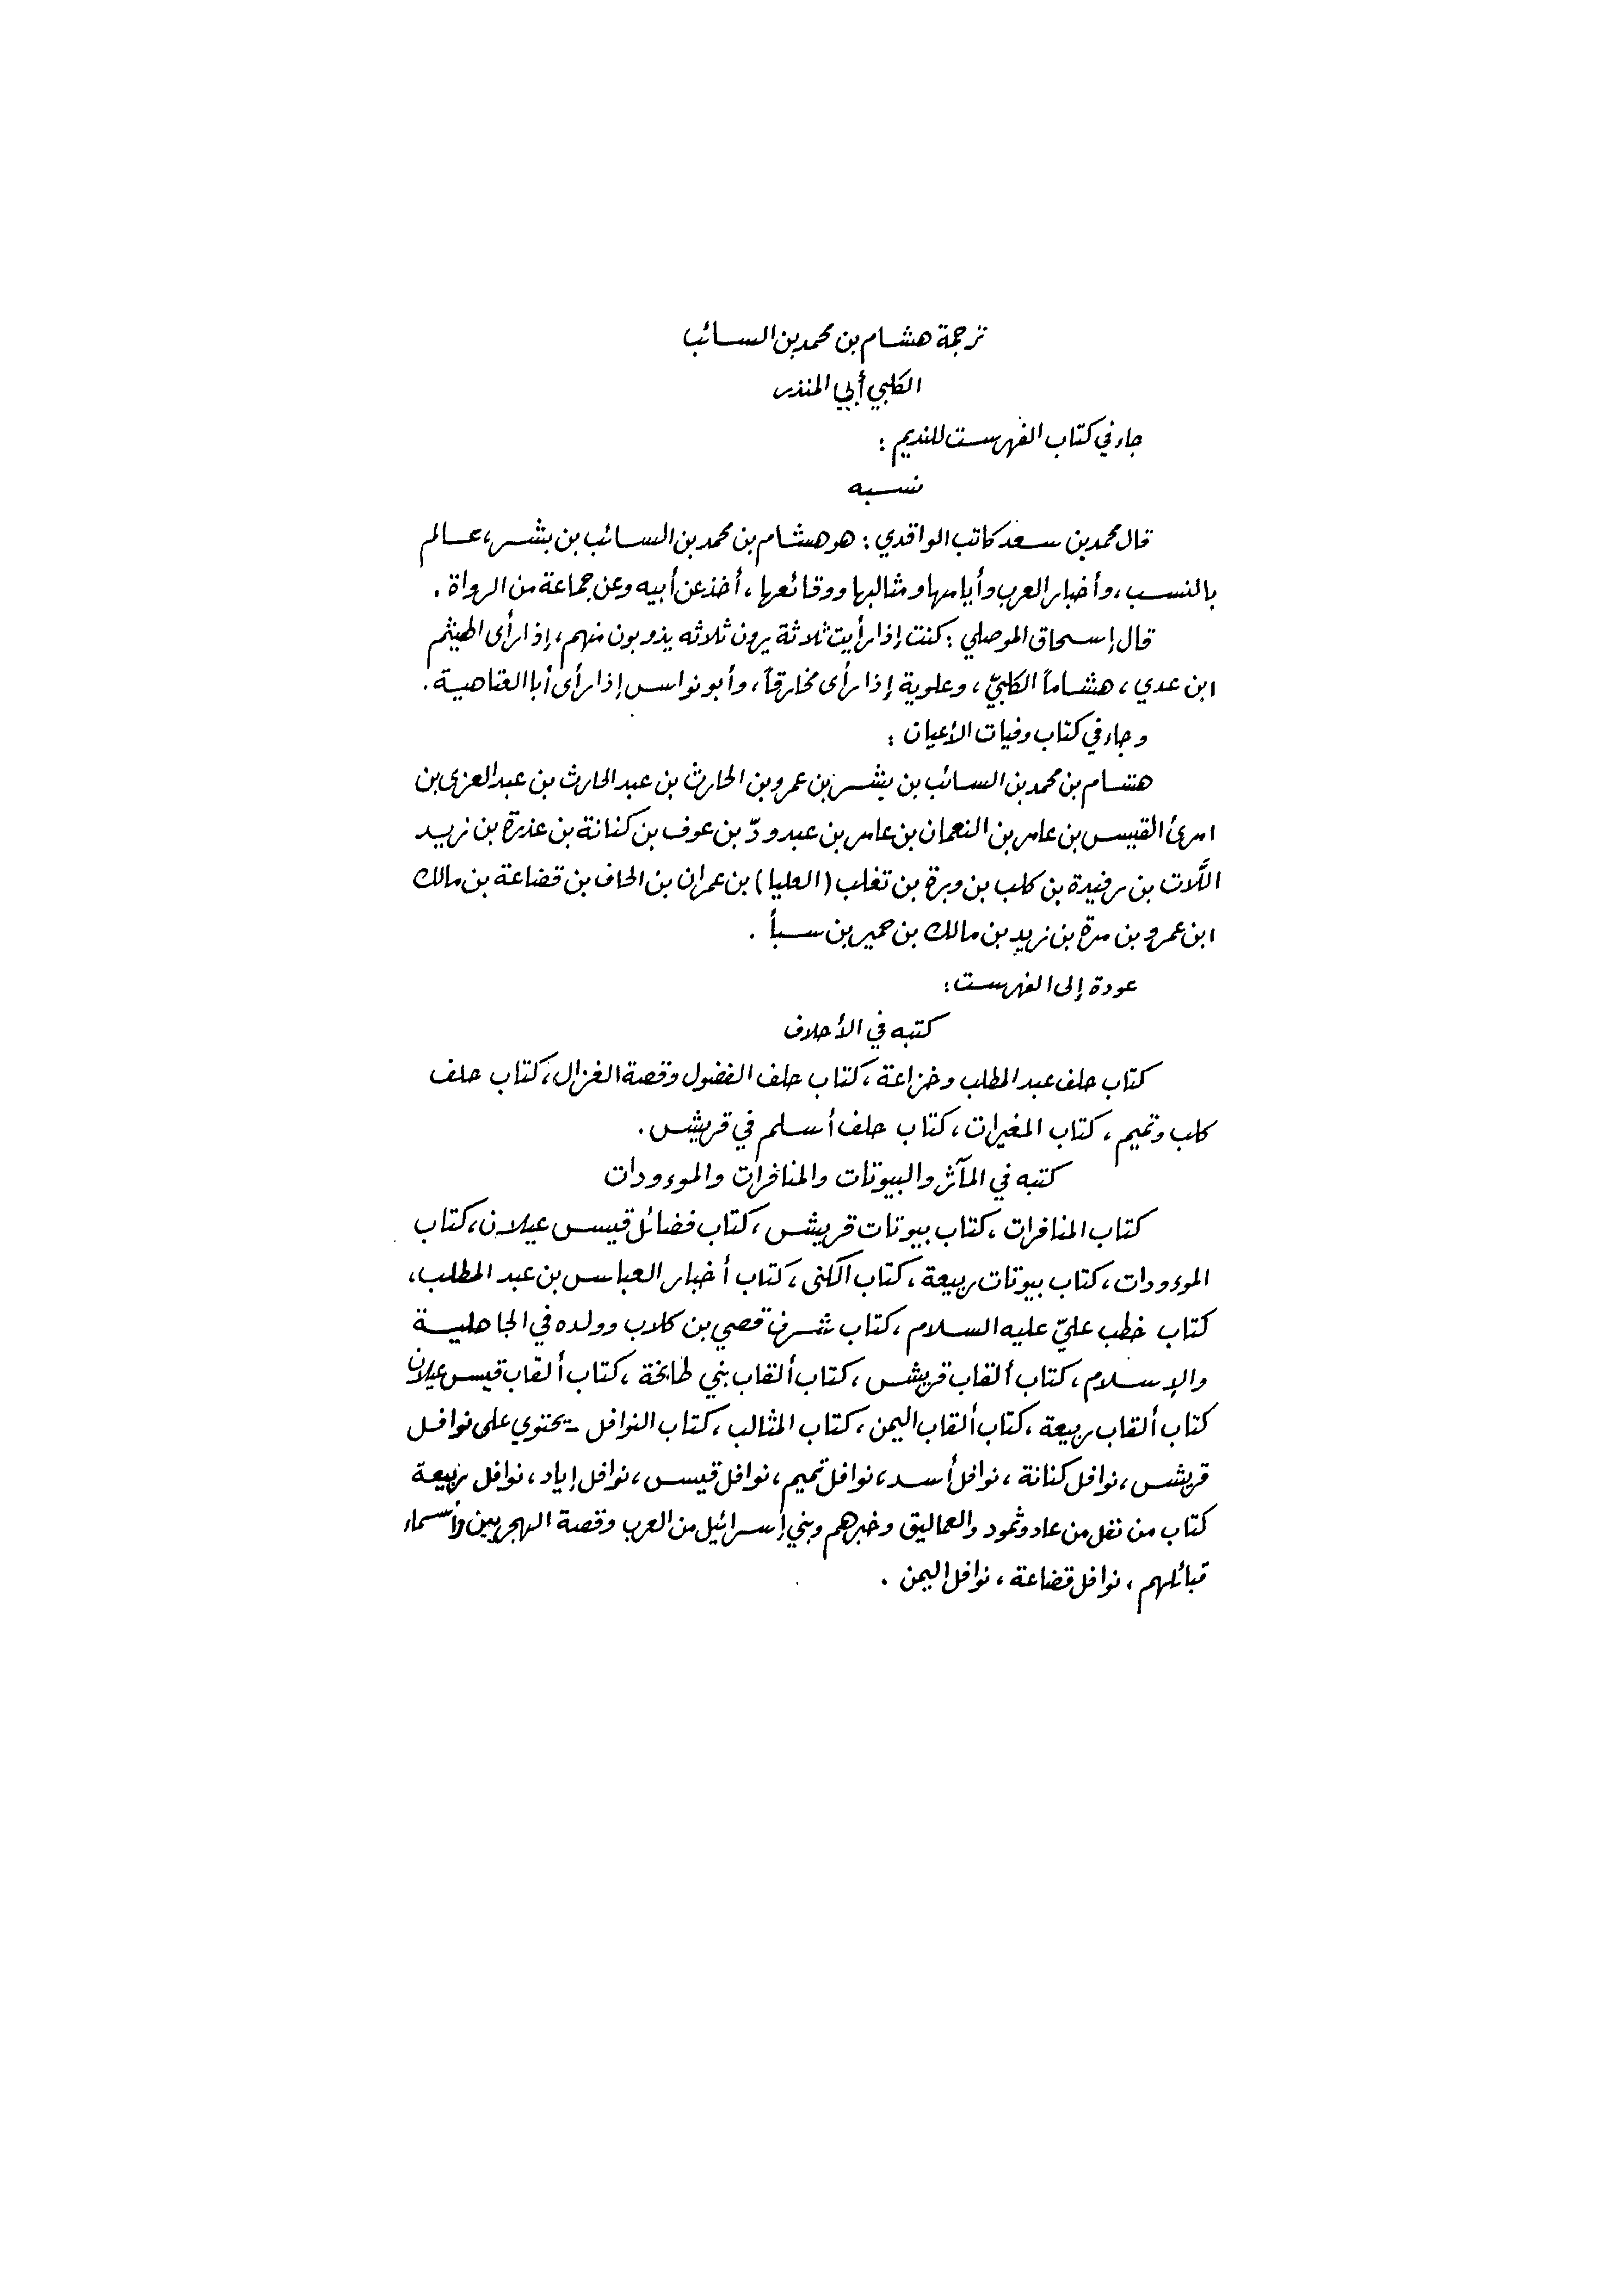 ترجمة هشام بن محمد بن السائب
الكلبي أبي المنذر
جاء في كتاب الفهرست للنديم :
نسبه
قال محمد بن سعد كاتب الواقدي : هو هشام بن محمد بن السائب بن بشر ، عالم
بالنسب ، وأخبار العرب وأيامها ومثالبها ووقائعها ، أخذ عن أبيه وعن جماعة من الرواة .
قال إسحاق الموصلي : كنت إذا رأيت ثلاثة يرون ثلاثه يذوبون منهم ، إذا رأى الهيثم
ابن عدي ، هشاماً الكلبيّ ، وعلوية إذا رأى مخارقاً ، وأبو نواس إذا رأى أبا العتاهية .
وجاء في كتاب وفيات الأعيان :
هشام بن محمد بن السائب بن بشر بن عمرو بن الحارث بن عبد الحارث بن عبد العزى بن
امرئ القيس بن عامر بن النعمان بن عامر بن عبد ودّ بن عوف بن كنانة بن عذرة بن زيد
اللَّات بن رفيدة بن كلب بن وبرة بن تغلب (العليا) بن عمران بن الحاف بن قضاعة بن مالك
ابن عمرو بن مرة بن زيد بن مالك بن حمير بن سبأ .
عودة إلى الفهرست :
كتبه في الأحلاف
كتاب حلف عبد المطلب وخزاعة ، كتاب حلف الفضول وقصة الغزال ، كتاب حلف
كلب وتميم ، كتاب المغيرات ، كتاب حلف أسلم في قريش .
كتبه في المآثر والبيوتات والمنافرات والموءودات
كتاب المنافرات ، كتاب بيوتات قريش ، كتاب فضائل قيس عيلان ، كتاب
الموءودات ، كتاب بيوتات ربيعة ، كتاب الكنى ، كتاب أخبار العباس بن عبد المطلب ،
كتاب خطب عليّ عليه السلام ، كتاب شرف قصي بن كلاب وولده في الجاهلية
والإسلام ، كتاب ألقاب قريش ، كتاب ألقاب بني طابخة ، كتاب ألقاب قيس عيلان
كتاب ألقاب ربيعة ، كتاب ألقاب اليمن ، كتاب المثالب ، كتاب النوافل - يحتوي على نوافل
قريش ، نوافل كنانة ، نوافل أسد ، نوافل تميم ، نوافل قيس ، نوافل إياد ، نوافل ربيعة
كتاب من نقل من عاد وثمود والعماليق وخبرهم وبني إسرائيل من العرب وقصة الهجريين وأسماء
قبائلهم ، نوافل قضاعة ، نوافل اليمن .